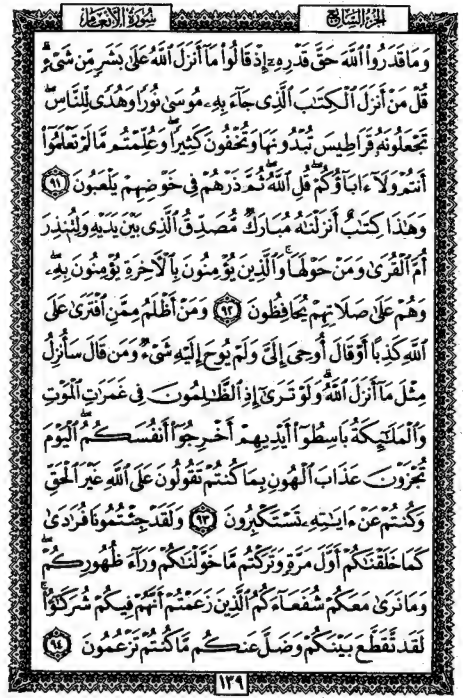 سُورَةُ الأَنْعَامِ الجُزْءُ السَّابِعُ
وَمَا قَدَرُوا۟ ٱللَّهَ حَقَّ قَدْرِهِۦٓ إِذْ قَالُوا۟ مَآ أَنزَلَ ٱللَّهُ عَلَىٰ بَشَرٍ مِّن شَىْءٍ ۗ
قُلْ مَنْ أَنزَلَ ٱلْكِتَـٰبَ ٱلَّذِى جَآءَ بِهِۦ مُوسَىٰ نُورًا وَهُدًى لِّلنَّاسِ ۖ
تَجْعَلُونَهُۥ قَرَاطِيسَ تُبْدُونَهَا وَتُخْفُونَ كَثِيرًا ۖ وَعُلِّمْتُم مَّا لَمْ تَعْلَمُوٓا۟
أَنتُمْ وَلَآ ءَابَآؤُكُمْ ۖ قُلِ ٱللَّهُ ۖ ثُمَّ ذَرْهُمْ فِى خَوْضِهِمْ يَلْعَبُونَ ٩١
وَهَـٰذَا كِتَـٰبٌ أَنزَلْنَـٰهُ مُبَارَكٌ مُّصَدِّقُ ٱلَّذِى بَيْنَ يَدَيْهِ وَلِتُنذِرَ
أُمَّ ٱلْقُرَىٰ وَمَنْ حَوْلَهَا ۚ وَٱلَّذِينَ يُؤْمِنُونَ بِٱلْـَٔاخِرَةِ يُؤْمِنُونَ بِهِۦ ۖ
وَهُمْ عَلَىٰ صَلَاتِهِمْ يُحَافِظُونَ ٩٢ وَمَنْ أَظْلَمُ مِمَّنِ ٱفْتَرَىٰ عَلَى
ٱللَّهِ كَذِبًا أَوْ قَالَ أُوحِىَ إِلَىَّ وَلَمْ يُوحَ إِلَيْهِ شَىْءٌ وَمَن قَالَ سَأُنزِلُ
مِثْلَ مَآ أَنزَلَ ٱللَّهُ ۗ وَلَوْ تَرَىٰٓ إِذِ ٱلظَّـٰلِمُونَ فِى غَمَرَٰتِ ٱلْمَوْتِ
وَٱلْمَلَـٰٓئِكَةُ بَاسِطُوٓا۟ أَيْدِيهِمْ أَخْرِجُوٓا۟ أَنفُسَكُمُ ۖ ٱلْيَوْمَ
تُجْزَوْنَ عَذَابَ ٱلْهُونِ بِمَا كُنتُمْ تَقُولُونَ عَلَى ٱللَّهِ غَيْرَ ٱلْحَقِّ
وَكُنتُمْ عَنْ ءَايَـٰتِهِۦ تَسْتَكْبِرُونَ ٩٣ وَلَقَدْ جِئْتُمُونَا فُرَٰدَىٰ
كَمَا خَلَقْنَـٰكُمْ أَوَّلَ مَرَّةٍ وَتَرَكْتُم مَّا خَوَّلْنَـٰكُمْ وَرَآءَ ظُهُورِكُمْ ۖ
وَمَا نَرَىٰ مَعَكُمْ شُفَعَآءَكُمُ ٱلَّذِينَ زَعَمْتُمْ أَنَّهُمْ فِيكُمْ شُرَكَـٰٓؤُا۟ ۚ
لَقَد تَّقَطَّعَ بَيْنَكُمْ وَضَلَّ عَنكُم مَّا كُنتُمْ تَزْعُمُونَ ٩٤
١٣٩